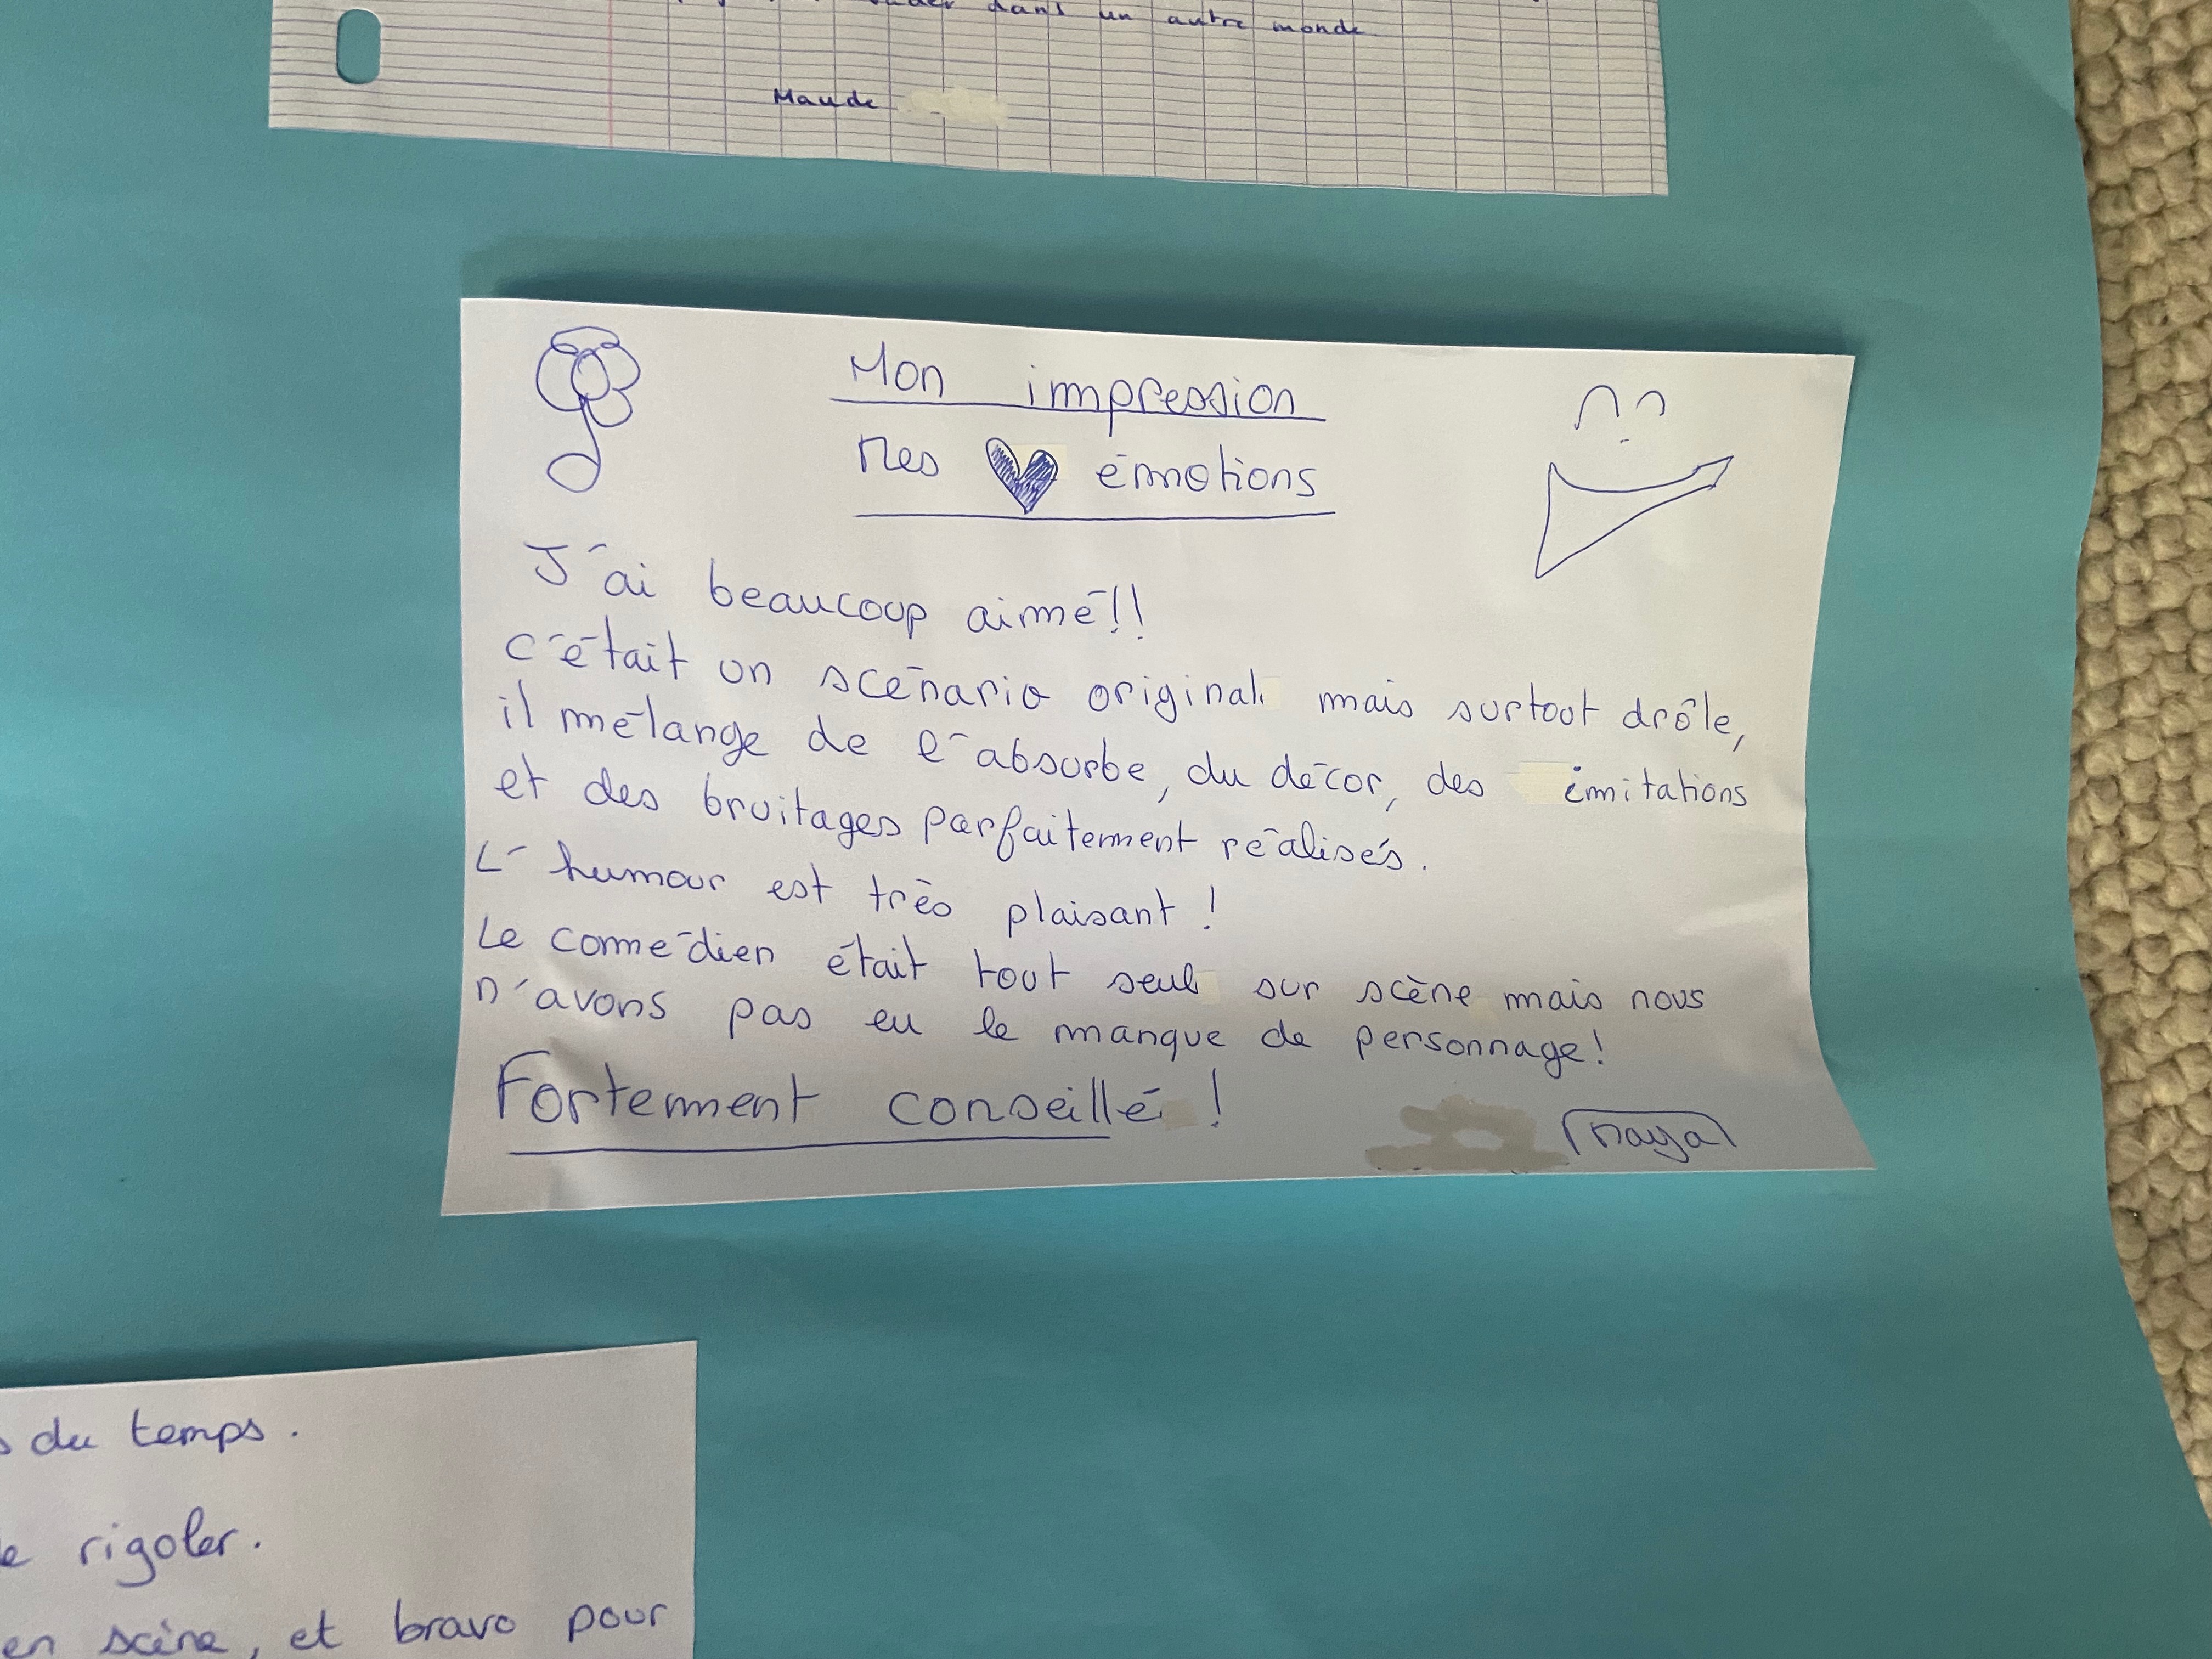 dans un autre monde
Maude
Mon impression
Mes émotions
J'ai beaucoup aimé!!
c'était un scénario original mais surtout drôle,
il mélange de l'absurbe, du décor, des imitations
et des bruitages parfaitement réalisés.
L'humour est très plaisant !
Le comédien était tout seul sur scène mais nous
n'avons pas eu le manque de personnage!
Fortement conseillé !
naya
du temps.
rigoler.
en scène, et bravo pour